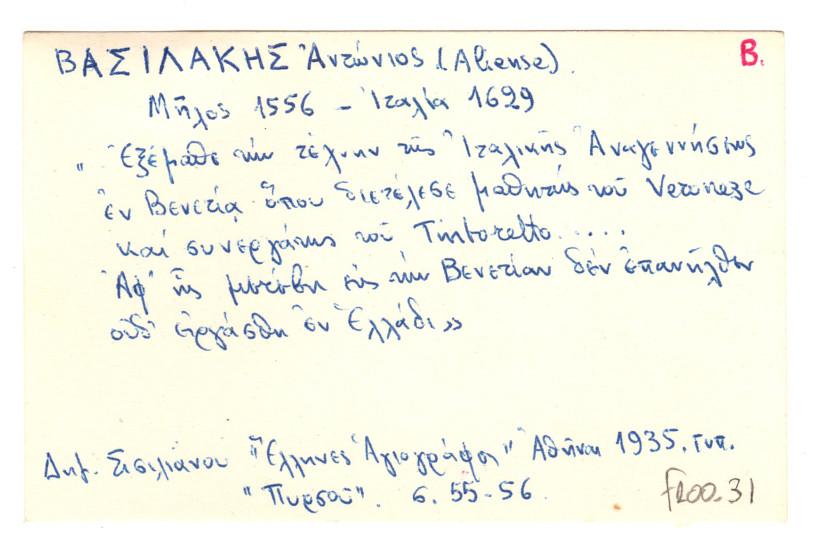 ΒΑΣΙΛΑΚΗΣ Ἀντώνιος (Aliense).
Β.
Μῆλος 1556 - Ἰταλία 1629
„ Ἐξέμαθε τὴν τέχνην τῆς Ἰταλικῆς Ἀναγεννήσεως
ἐν Βενετίᾳ ὅπου διετέλεσε μαθητὴς τοῦ Veronese
καὶ συνεργάτης τοῦ Tintoretto.....
Ἀφ' ἧς μετέβη εἰς τὴν Βενετίαν δὲν ἐπανῆλθεν
οὐδ' εἰργάσθη ἐν Ἑλλάδι »
Δημ. Σισιλιάνου "Ἕλληνες Ἁγιογράφοι" Ἀθῆναι 1935. Τυπ.
"Πυρσοῦ". σ. 55-56.
f200.31